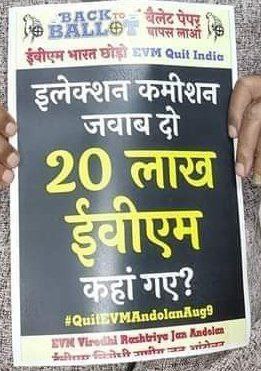 BACK TO BALLOT
बैलेट पेपर
वापस लाओ
ईवीएम भारत छोड़ो EVM Quit India
इलेक्शन कमीशन
जवाब दो
20 लाख
ईवीएम
कहां गए?
#QuitEVMAndolanAug9
EVM Virodhi Rashtriya Jan Andolan
ईवीएम विरोधी राष्ट्रीय जन आंदोलन